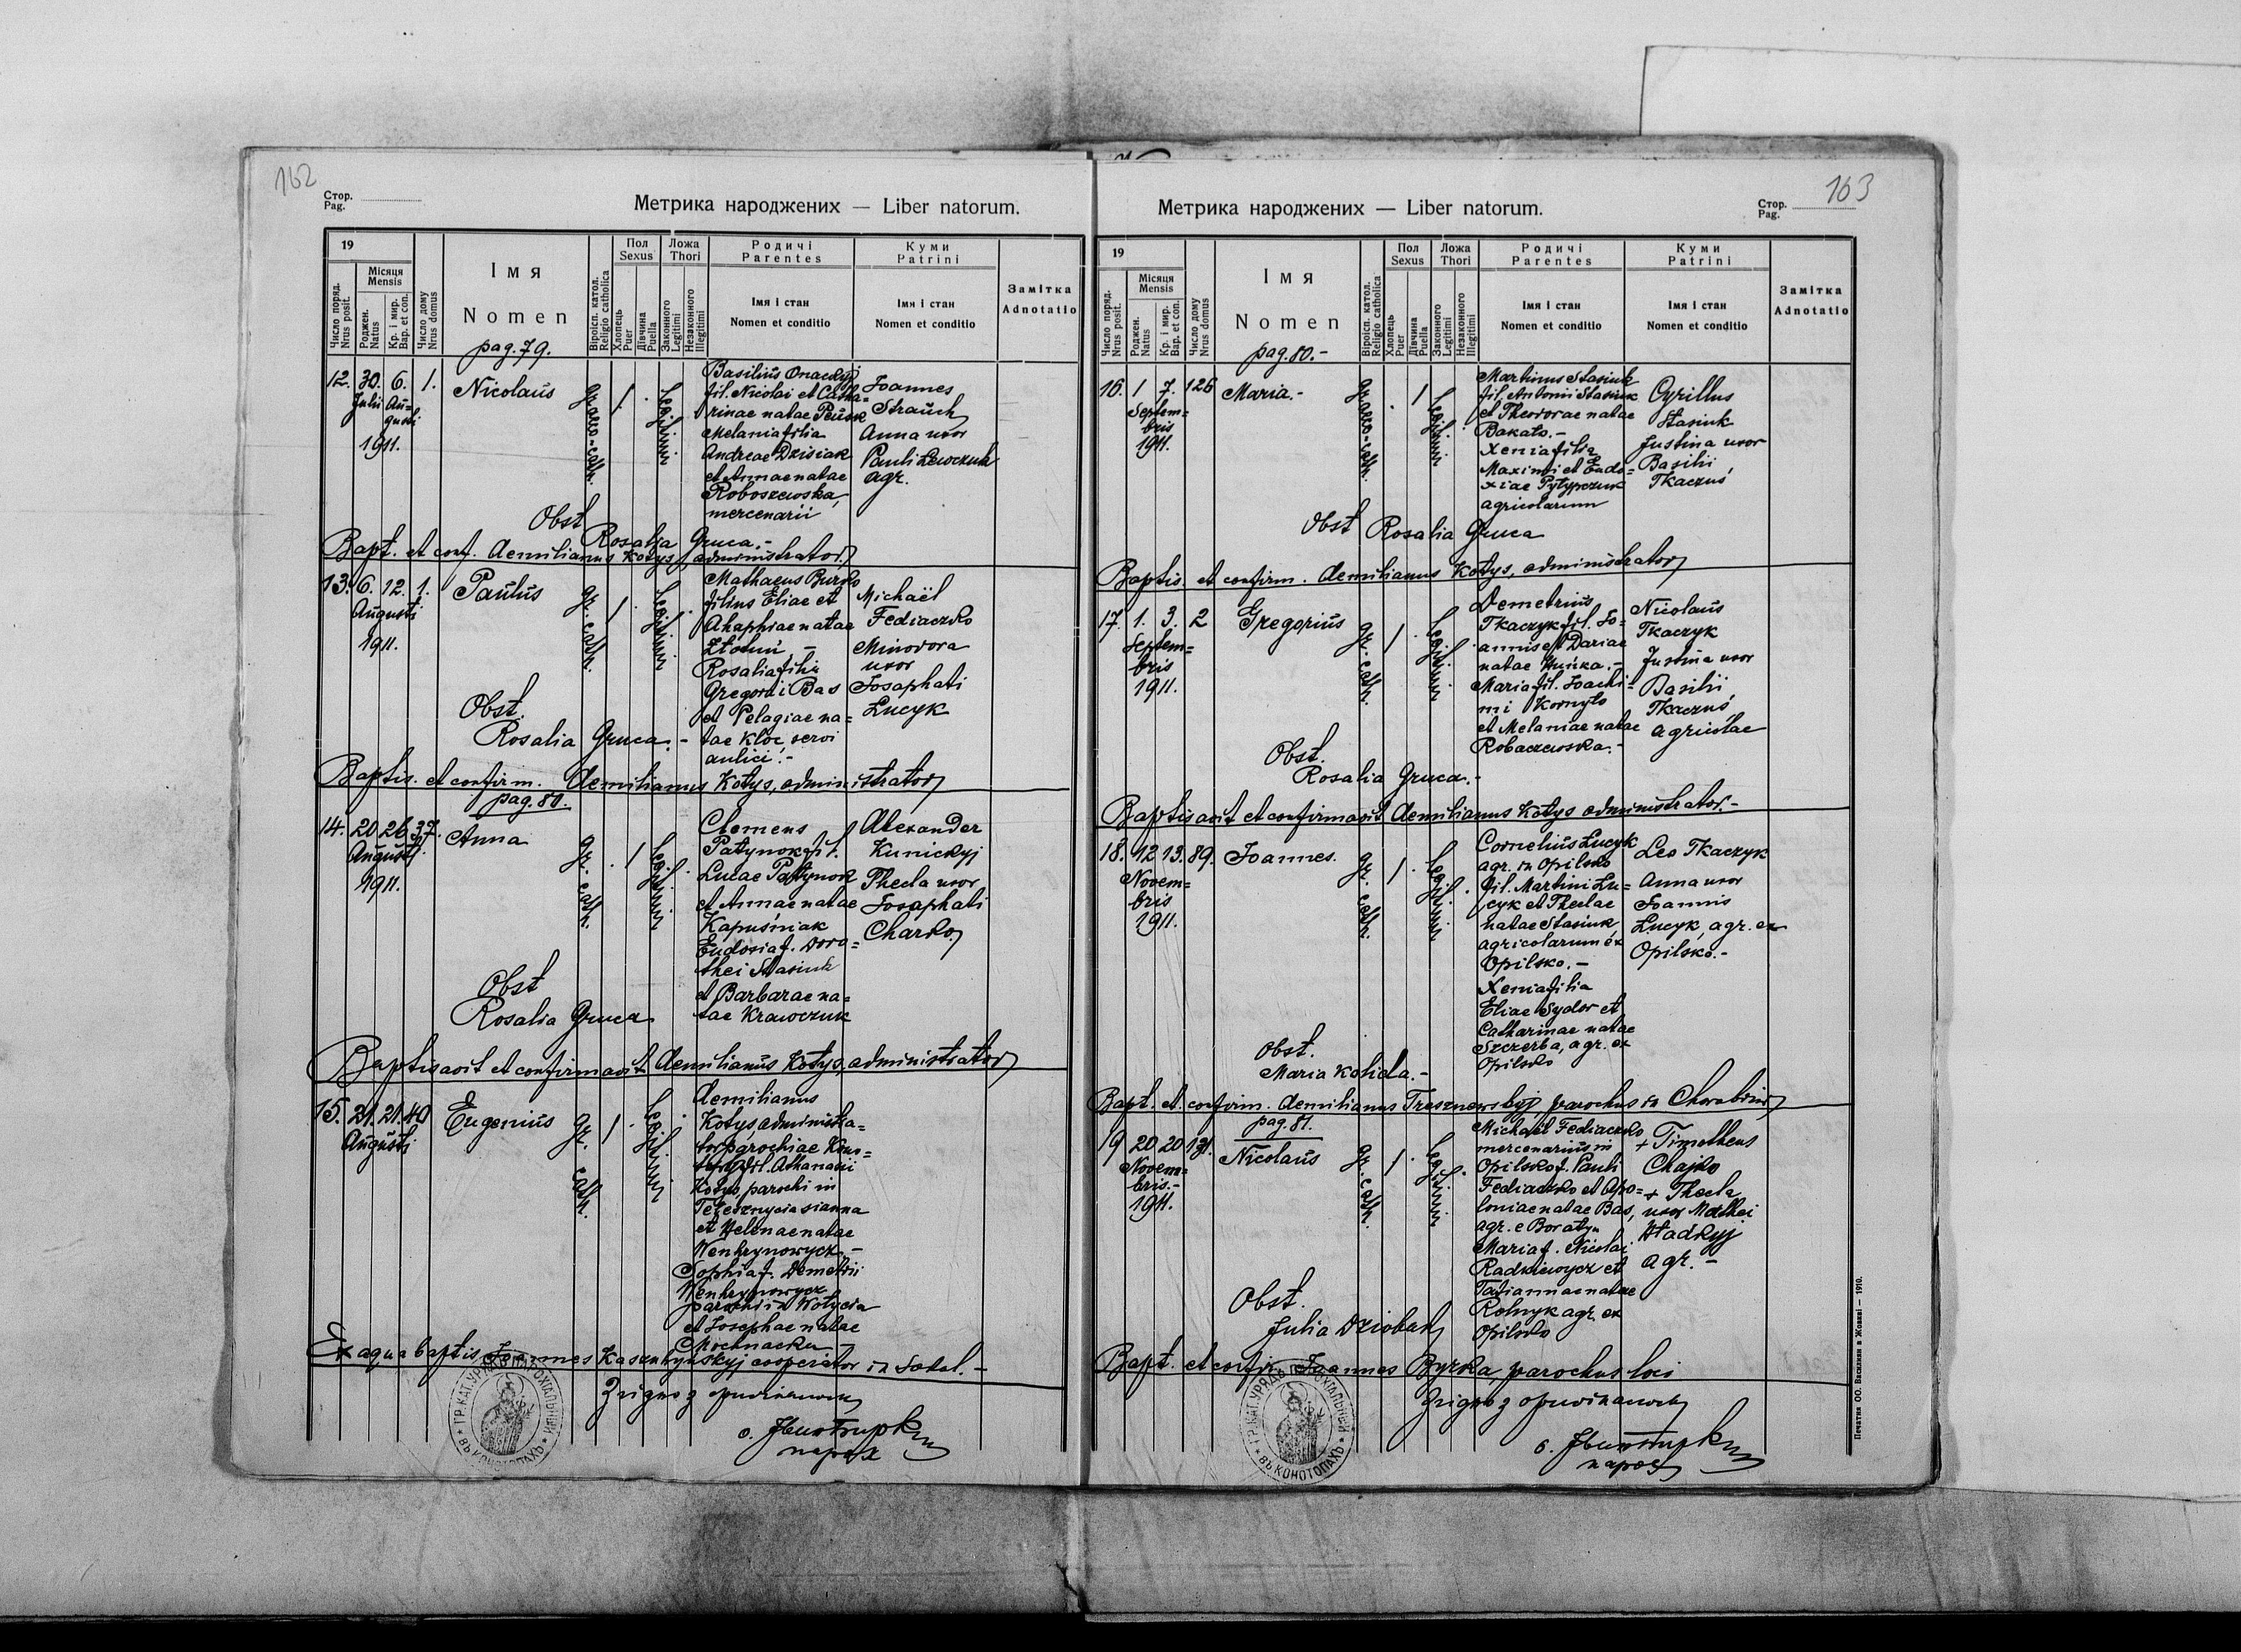 162
Стор.
Pag.
Метрика народжених — Liber natorum.
19
Число поряд.
Nrus posit.
Місяця
Mensis
Роджен.
Natus
Кр. і мир.
Bap. et con.
Число дому
Nrus domus
Імя
Nomen
pag. 79.
Віроісп. катол.
Religio catholica
Пол
Sexus
Хлопець
Puer
Дівчина
Puella
Ложа
Thori
Законного
Legitimi
Незаконного
Illegitimi
Родичі
Parentes
Імя і стан
Nomen et conditio
Куми
Patrini
Імя і стан
Nomen et conditio
Замітка
Adnotatio
12. 30. 6. 1. Nicolaus
Julii Au=
gusti
1911.
graeco-cath.
1 .
Legitimi
Basilius Onackyj
fil. Nicolai et Catha=
rinae natae Peusk
Melania filia
Andreae Dzisiak
et Annae natae
Roboszewska,
mercenarii
Joannes
Strauch
Anna uxor
Pauli Lewczuk
agr.
Obst
Rosalia Gruca.-
Bapt. et conf. Aemilianus Kotys, administrator
13. 6. 12. 1. Paulus
Augusti
1911.
gr. cath.
1 .
Legitimi
Mathaeus Burko
filius Eliae et
Ahaphiae natae
Rosalia filia
Gregorii Bas
et Pelagiae na=
tae Kloc, servi
aulici.-
Michaël
Fediaczko
Minodora
uxor
Josaphati
Lucyk
Obst.
Rosalia Gruca.-
Baptis. et confirm. Aemilianus Kotys, administrator
pag. 80.
14. 20 26 37. Anna
Augusti
1911.
gr. cath.
. 1
Legitimi
Clemens
Patynok fil.
Lucae Patynok
et Annae natae
Kapuśniak
Eudosia f. Doro=
thei Stasiuk
et Barbarae na=
tae Krawczuk
Alexander
Kunickyj
Thecla uxor
Josaphati
Charko
Obst
Rosalia Gruca
Baptisavit et confirmavit Aemilianus Kotys, administrator
15. 21. 21. 40 Eugenius
Augusti
gr. cath.
1 .
Legitimi
Aemilianus
Kotys, administra=
tor parochiae Kono=
fil. Athanasii
Kotys, parochi in
Teleśznycia sianna
et Helenae natae
Wenhrynowycz.-
Sophia f. Demetrii
Wenhrynowycz
parochi in Wolycia
et Josephae natae
Mochnacka
Ex aqua baptis. Joannes cooperator in Sokal.-
ГР. КАТ. УРЯДЪ ПАРОХІАЛЬНЫЙ
ВЪ КОНОТОПАХЪ
парох
163
Стор.
Pag.
Метрика народжених — Liber natorum.
19
Число поряд.
Nrus posit.
Місяця
Mensis
Роджен.
Natus
Кр. і мир.
Bap. et con.
Число дому
Nrus domus
Імя
Nomen
pag. 80.-
Віроісп. катол.
Religio catholica
Пол
Sexus
Хлопець
Puer
Дівчина
Puella
Ложа
Thori
Законного
Legitimi
Незаконного
Illegitimi
Родичі
Parentes
Імя і стан
Nomen et conditio
Куми
Patrini
Імя і стан
Nomen et conditio
Замітка
Adnotatio
16. 1 7. 126 Maria.-
Septem=
bris
1911.
graeco-cath.
. 1
Legitimi
Martinus Stasiuk
fil. Antonii Stasiuk
et Theodorae natae
Bakalo.-
Xenia filia
Maximi et Eudo=
xiae Pylypczuk
agricolarum
Cyrillus
Stasiuk
Justina uxor
Basilii
Tkaczuś
Obst Rosalia Gruca
Baptis. et confirm. Aemilianus Kotys, administrator
17. 1. 3. 2 Gregorius
Septem=
bris
1911.
gr. cath.
1 .
Legitimi
Demetrius
Tkaczyk fil. Jo=
annis et Dariae
natae Huńka.-
Maria fil. Joachi=
mi Kornylo
et Melaniae natae
Robaczewska.-
Nicolaus
Tkaczyk
Justina uxor
Basilii
Tkaczuś
agricolae
Obst.
Rosalia Gruca.-
Baptisavit et confirmavit Aemilianus Kotys administrator.-
18. 12 13. 89. Joannes.
Novem=
bris
1911.
gr. cath.
1 .
Legitimi
Cornelius Lucyk
agr. in Opilsko
fil. Martini Lu=
cyk et Theclae
natae Stasiuk,
agricolarum ex
Opilsko.-
Xenia filia
Eliae Sydor et
Catharinae natae
Szczerba, agr. ex
Opilsko
Leo Tkaczyk
Anna uxor
Joannis
Lucyk, agr. ex
Opilsko.-
Obst.
Maria Kohda.-
Bapt. et confirm. Aemilianus Tresznewskyj, parochus in Chorobrow
pag. 81.
19 20 20 131. Nicolaus
Novem=
bris.-
1911.
gr. cath.
1 .
Legitimi
Michaël Fediaczko
mercenarius in
Opilsko f. Pauli
Fediaczko et Apo=
loniae natae Bas,
agr. e Boratyn
Maria f. Nicolai
Radkiewycz et
Tatiannae natae
Rolnyk agr. ex
Opilsko
+ Timotheus
Chajko
+ Thecla
uxor Mathei
Hladkyj
agr.-
Obst.
Julia Dzioban
Bapt. et confir. Joannes Byrka parochus loci
ГР. КАТ. УРЯДЪ ПАРОХІАЛЬНЫЙ
ВЪ КОНОТОПАХЪ
парох
Печатня ОО. Василиян в Жовкві — 1910.